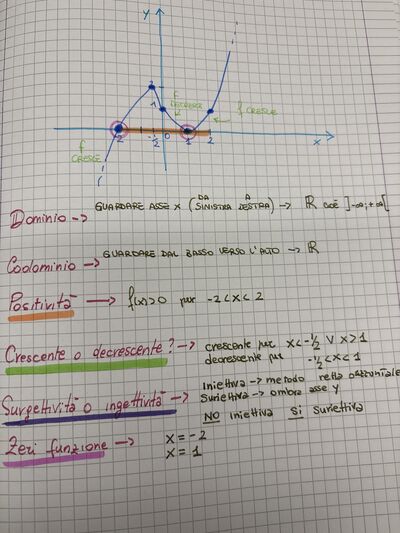 y
2
1
f
DECRESCE
f CRESCE
-2
-1/2
0
1
2
x
f
CRESCE
Dominio -> GUARDARE ASSE X (DA SINISTRA A DESTRA) -> ℝ cioè ]-∞;+∞[
Codominio -> GUARDARE DAL BASSO VERSO L'ALTO -> ℝ
Positività -> f(x)>0 per -2<x<2
Crescente o decrescente? -> crescente per x<-1/2 V x>1
decrescente per -1/2<x<1
Surgettività o ingettività -> Iniettiva -> metodo retta orizzontale
Suriettiva -> ombra asse y
NO iniettiva SI suriettiva
Zeri funzione -> x=-2
x=1